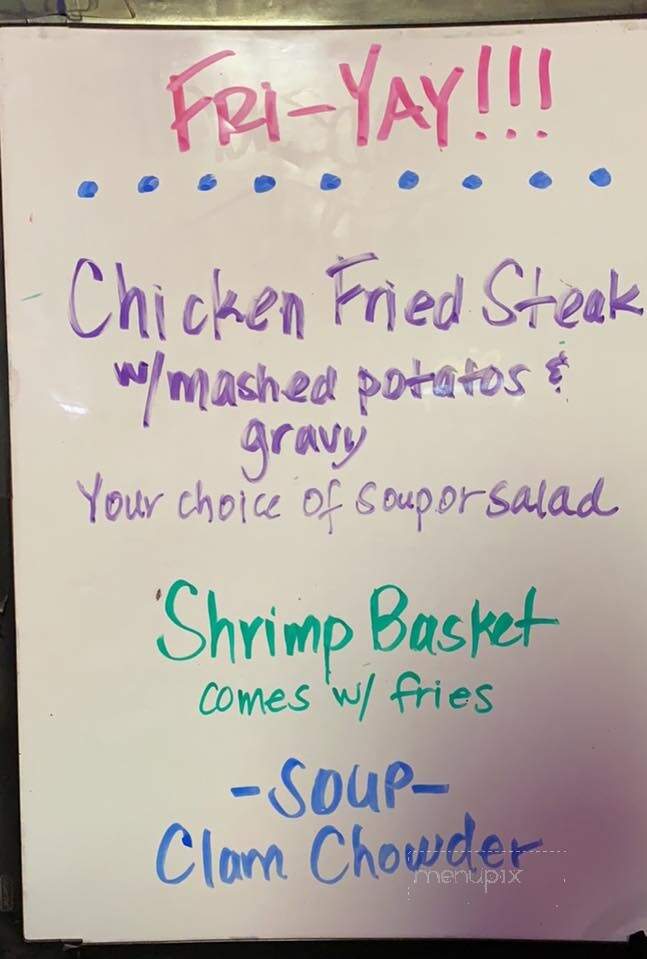 FRI-YAY!!!
Chicken Fried Steak
w/mashed potatos &
gravy
Your choice of soup or salad
Shrimp Basket
comes w/ fries
-SOUP-
Clam Chowder
menupix